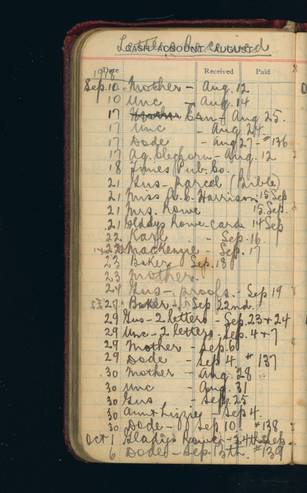 Letters Received
CASH ACCOUNT—AUGUST
Date Received Paid
1918
Sep. 10 - Mother - Aug. 12
10 Unc - Aug. 14
17 Con - Aug. 25
17 Unc - Aug 24
17 Dode - Aug 27 - #136
17 Ag. Cleghorn - Aug. 12
18 Pub. Co.
21 Gus - Parcel (Bible)
21 Miss Harrison 15 Sep
21 Mrs. Rowe 15 Sep.
21 Gladys Rowe Card 14 Sep
22 - Sep. 16
Mackenzie - Sep. 17
23 Baker Sep. 18
23 Mother
24 Gus - proofs - Sep 19
Baker - Sep 22nd
29 Gus - 2 letters - Sep. 23 + 24
29 Unc - 2 letters - Sep. 4 + 7
29 Mother - Sep. 6
29 Dode - Sep 4 # 137
30 Mother - Aug. 28
30 Unc - Aug. 31
30 Gus - Sep. 25
30 Aunt Lizzie - Sep 4.
30 Dode - Sep 10 #138
Oct 1 Gladys Rowe - 24th Sep
6 Dode - Sep. 13th. #139